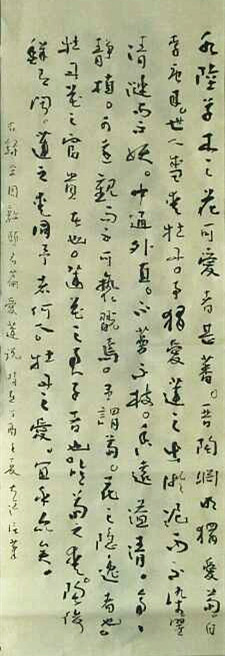 水陸草木之花可愛者甚蕃。晋陶渊明独愛菊自
李唐来。世人盛愛牡丹。予独愛蓮之出淤泥而不染濯
清漣而不妖。中通外直。不蔓不枝。香遠溢清。亭亭
静植。可遠觀而不可褻翫焉。予謂菊。花之隐逸者也。
牡丹花之富貴者也。蓮花之君子者也。噫菊之愛。陶後
鮮有闻。蓮之愛同予者何人。牡丹之愛。宜乎众矣。
右録宋周敦頤名篇愛蓮说 时在丁酉